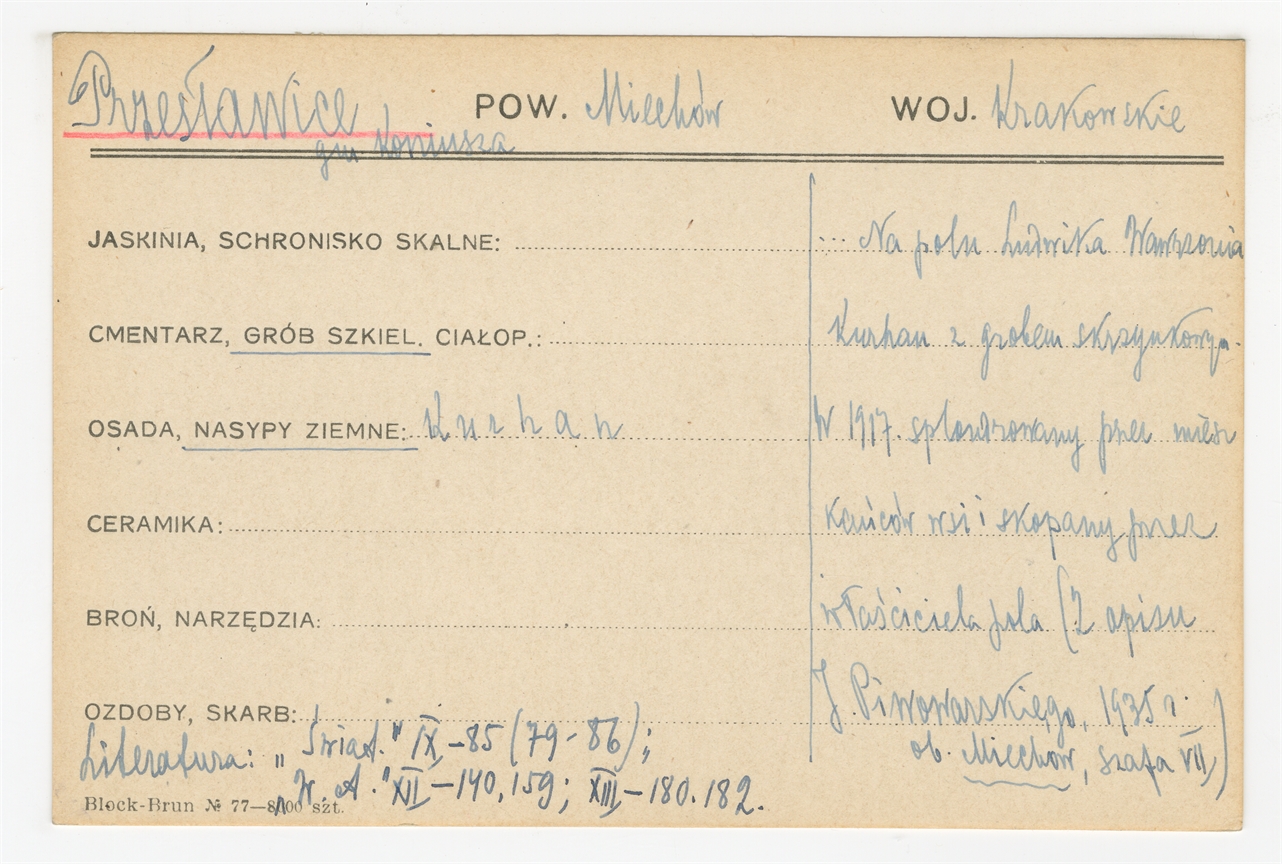 Przesławice POW. Miechów WOJ. Krakowskie
gm. Koniusza
JASKINIA, SCHRONISKO SKALNE:
CMENTARZ, GRÓB SZKIEL. CIAŁOP.:
OSADA, NASYPY ZIEMNE: Kurhan
CERAMIKA:
BROŃ, NARZĘDZIA:
OZDOBY, SKARB:
Na polu Ludwika Wawrzonia
Kurhan z grobem skrzynkowym.
W 1917. splondrowany przez miesz
kańców wsi i skopany przez
właściciela pola (Z opisu
J. Piwowarskiego, 1935 r.
ob. Miechów, szafa VII)
Literatura: „Świat." IX-85 (79-86);
„W. A." XII-140, 159; XIII-180. 182.
Block-Brun № 77—8000 szt.